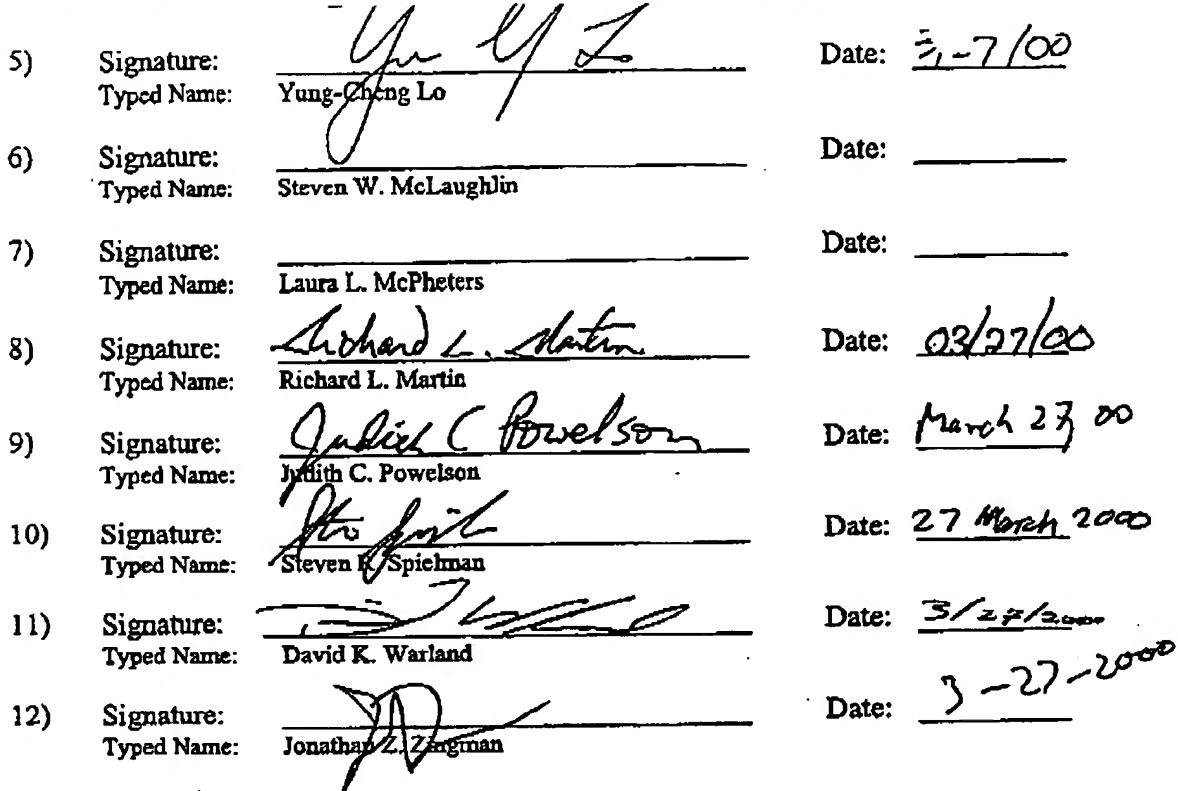 5) Signature: Yu Y Lo Date: 3,-7/00
Typed Name: Yung-Cheng Lo
6) Signature: Date:
Typed Name: Steven W. McLaughlin
7) Signature: Date:
Typed Name: Laura L. McPheters
8) Signature: Richard L. Martin Date: 03/27/00
Typed Name: Richard L. Martin
9) Signature: Judith C Powelson Date: March 27, 00
Typed Name: Judith C. Powelson
10) Signature: Date: 27 March 2000
Typed Name: Steven Spielman
11) Signature: Date: 3/27/2000
Typed Name: David K. Warland
12) Signature: Date: 3-27-2000
Typed Name: Jonathan Z. Zingman